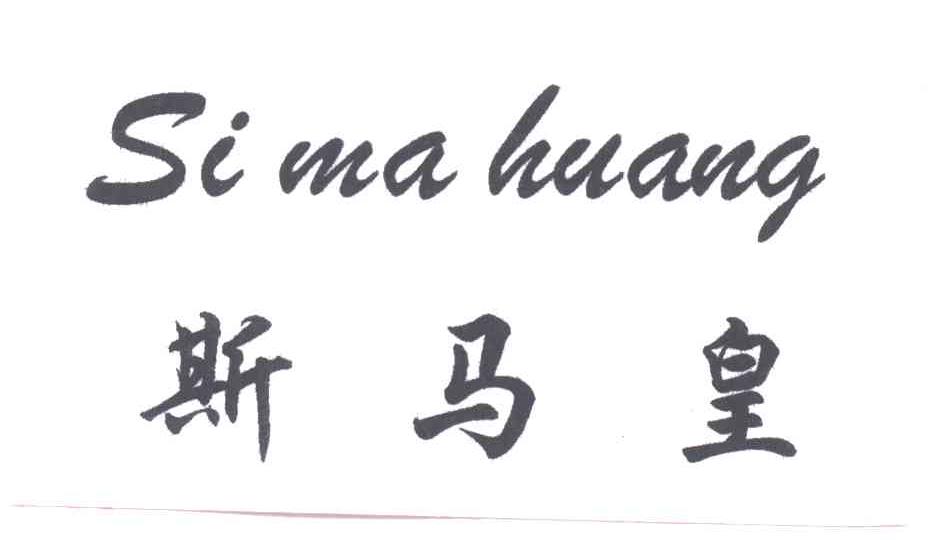 Si ma huang
斯马皇